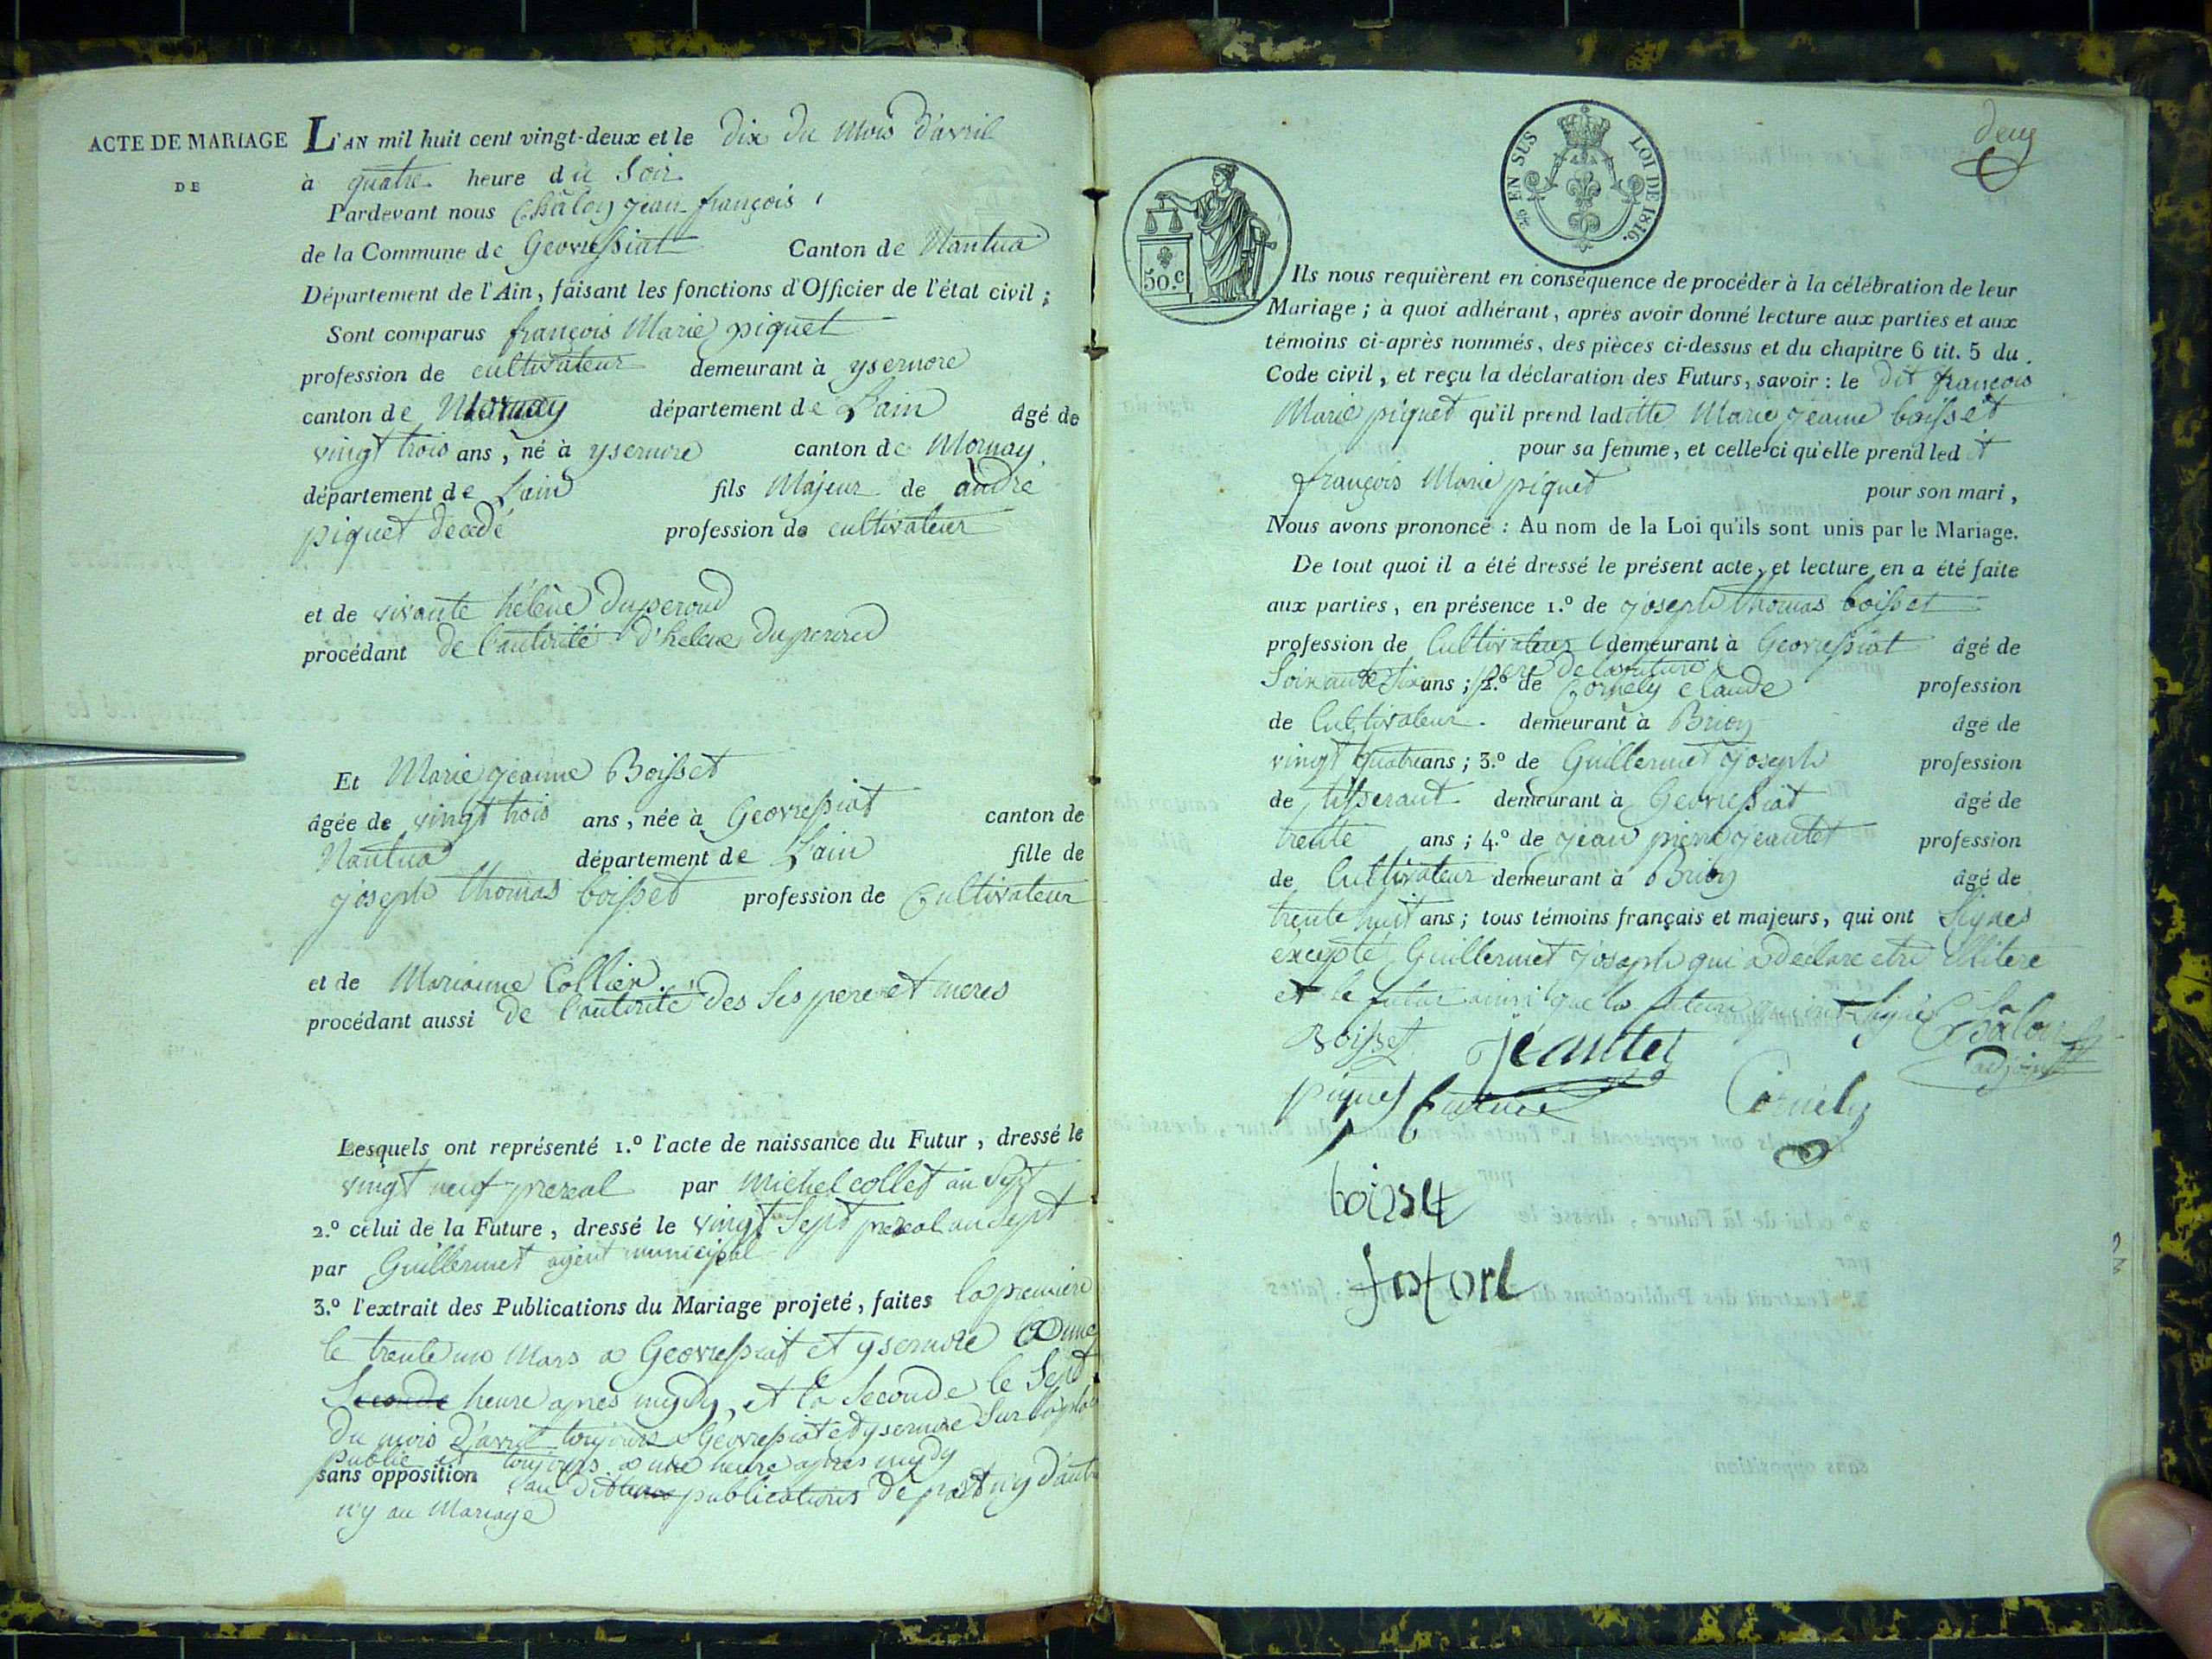 ACTE DE MARIAGE
DE
L'AN mil huit cent vingt-deux et le dix du mois d'avril
à quatre heure du soir
Pardevant nous Châlon jean françois
de la Commune de Geovressiat Canton de Nantua
Département de l'Ain, faisant les fonctions d'Officier de l'état civil ;
Sont comparus françois Marie piquet
profession de cultivateur demeurant à ysernore
canton de Mornay département de L'ain âgé de
vingt trois ans, né à ysernore canton de Mornay
département de L'ain fils Majeur de andré
piquet decedé profession de cultivateur
et de vivante héléne duperoud
procédant de l'autorité d'helene duperoud
Et Marie jeanne Boisset
âgée de vingt trois ans, née à Geovressiat canton de
Nantua département de L'ain fille de
joseph thomas boisset profession de Cultivateur
et de Marianne Collier
procédant aussi de l'autorité des ses pere et meres
Lesquels ont représenté 1.º l'acte de naissance du Futur, dressé le
vingt neuf prereal par Michel collet an sept
2.º celui de la Future, dressé le vingt sept prereal an sept
par Guillermet agent municipal
3.º l'extrait des Publications du Mariage projeté, faites la premiere
le trente un Mars a Geovressiat et ysernore a une
Seconde heure apres mydy, et la Seconde le Sept
du mois d'avril toujours a Geovressiat et ysernore sur la place
public et toujours a une heure apres mydy
sans opposition publications de part n'y d'autre
n'y au Mariage
deux
EN SUS LOI DE 1816.
50.c
Ils nous requièrent en conséquence de procéder à la célébration de leur
Mariage ; à quoi adhérant, après avoir donné lecture aux parties et aux
témoins ci-après nommés, des pièces ci-dessus et du chapitre 6 tit. 5 du
Code civil, et reçu la déclaration des Futurs, savoir : le dit françois
Marie piquet qu'il prend laditte Marie jeanne boisset
pour sa femme, et celle-ci qu'elle prend ledit
françois Marie piquet pour son mari,
Nous avons prononcé : Au nom de la Loi qu'ils sont unis par le Mariage.
De tout quoi il a été dressé le présent acte, et lecture en a été faite
aux parties, en présence 1.º de joseph thomas boisset
profession de Cultivateur demeurant à Geovressiat âgé de
pere de la future
Soixante six ans ; 2.º de Cornely claude profession
de Cultivateur demeurant à Brion âgé de
vingt quatre ans ; 3.º de Guillermet joseph profession
de tisserant demeurant à Geovressiat âgé de
trente ans ; 4.º de jean pierre jeantet profession
de Cultivateur demeurant à Brion âgé de
trente huit ans ; tous témoins français et majeurs, qui ont signes
excepté Guillermet joseph qui a déclaré etre illitere
et le futur ainsi que la future qui ont signé Châlon
Boisset jeantet adjoint
piquet Cornely
boisset